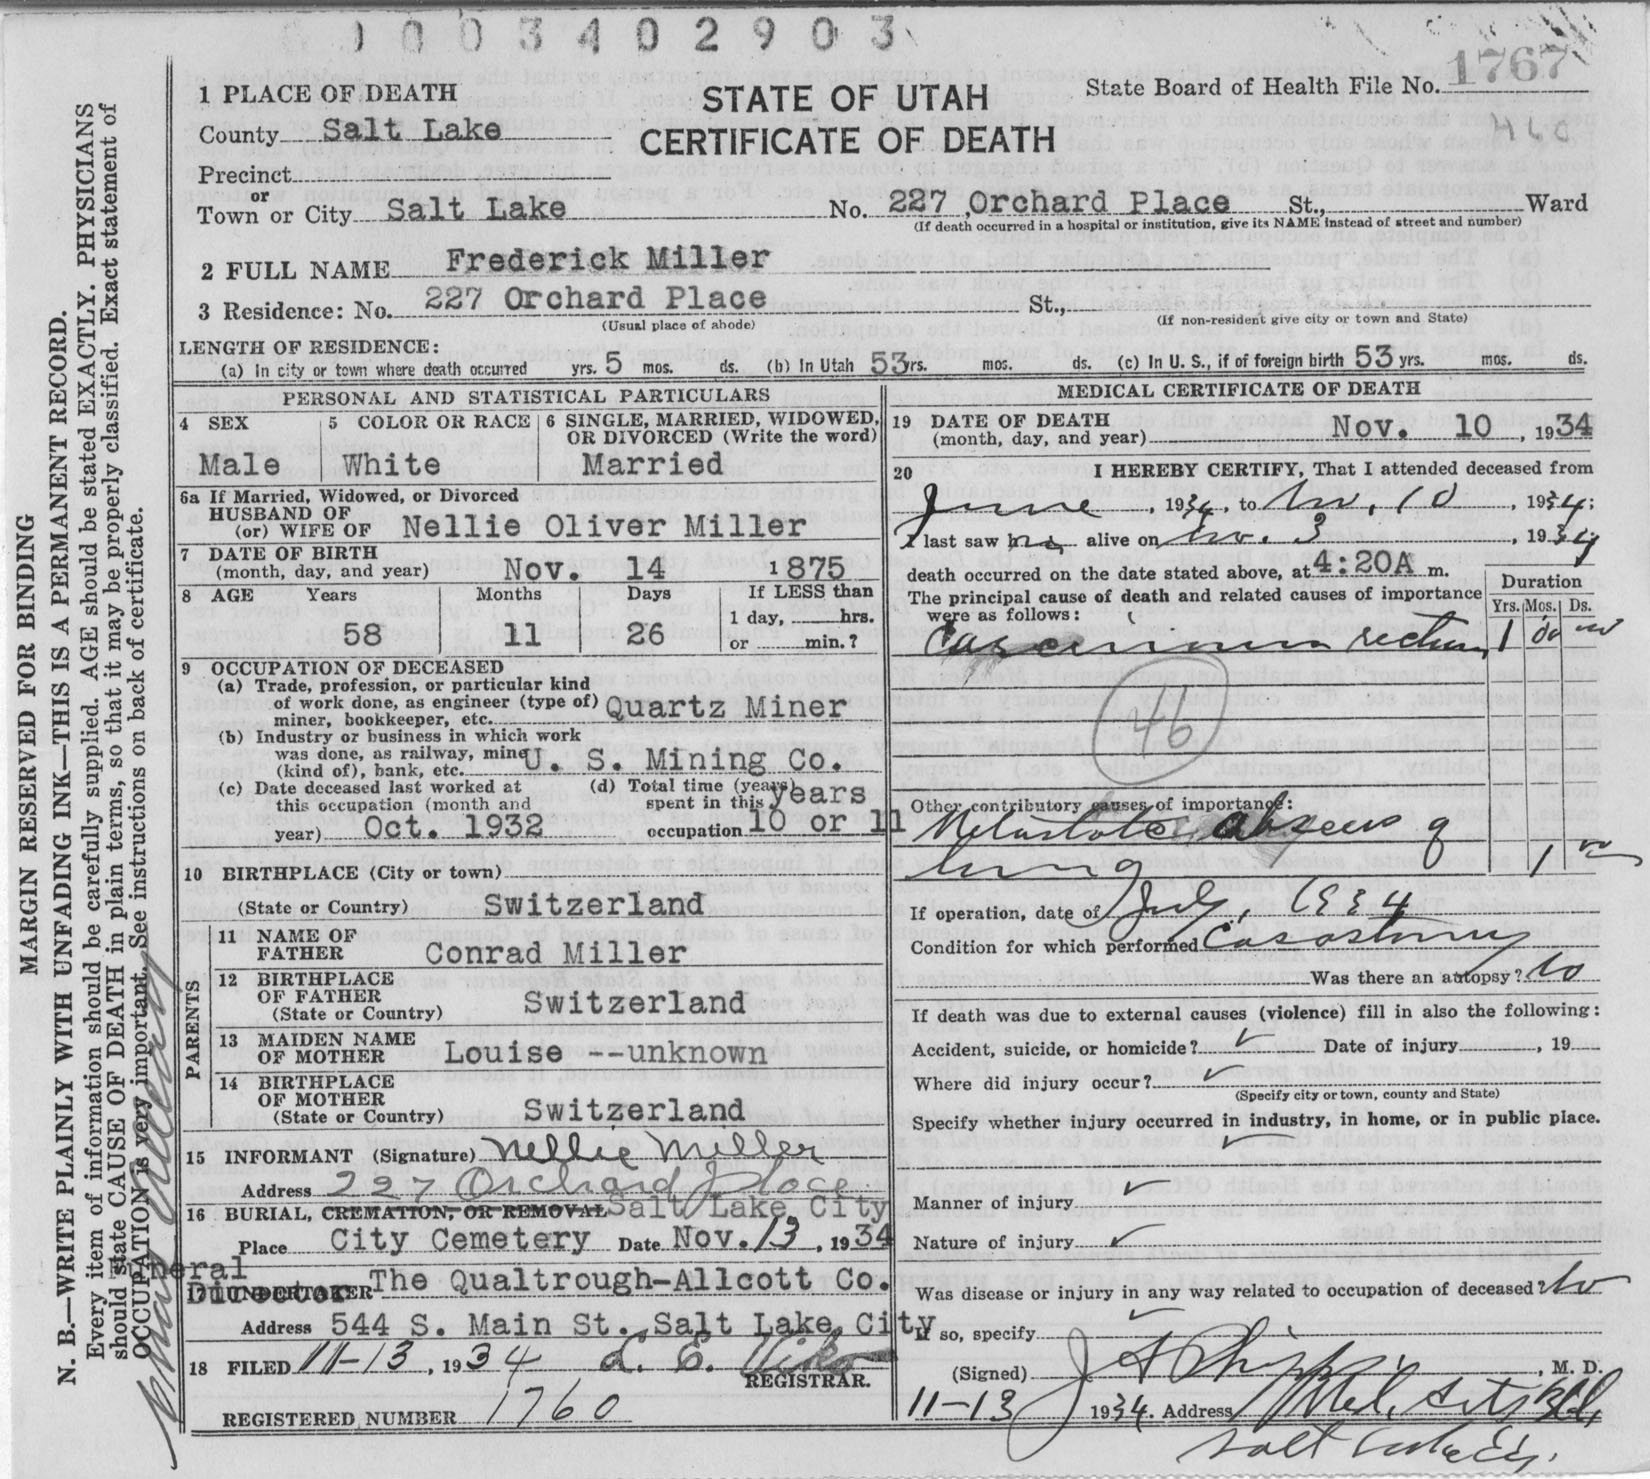 0003402903
1767
State Board of Health File No.
460
STATE OF UTAH
CERTIFICATE OF DEATH
1 PLACE OF DEATH
County Salt Lake
Precinct
or
Town or City Salt Lake No. 227 Orchard Place St., Ward
(If death occurred in a hospital or institution, give its NAME instead of street and number)
2 FULL NAME Frederick Miller
3 Residence: No. 227 Orchard Place St.,
(Usual place of abode) (If non-resident give city or town and State)
LENGTH OF RESIDENCE:
(a) In city or town where death occurred yrs. 5 mos. ds. (b) In Utah 53 yrs. mos. ds. (c) In U. S., if of foreign birth 53 yrs. mos. ds.
PERSONAL AND STATISTICAL PARTICULARS
4 SEX 5 COLOR OR RACE 6 SINGLE, MARRIED, WIDOWED, OR DIVORCED (Write the word)
Male White Married
6a If Married, Widowed, or Divorced
HUSBAND OF
(or) WIFE OF Nellie Oliver Miller
7 DATE OF BIRTH
(month, day, and year) Nov. 14 1875
8 AGE Years Months Days If LESS than
1 day, hrs.
58 11 26 or min.?
9 OCCUPATION OF DECEASED
(a) Trade, profession, or particular kind
of work done, as engineer (type of)
miner, bookkeeper, etc. Quartz Miner
(b) Industry or business in which work
was done, as railway, mine
(kind of), bank, etc. U. S. Mining Co.
(c) Date deceased last worked at
this occupation (month and
year) Oct. 1932
(d) Total time (years)
spent in this
occupation years 10 or 11
10 BIRTHPLACE (City or town)
(State or Country) Switzerland
PARENTS
11 NAME OF
FATHER Conrad Miller
12 BIRTHPLACE
OF FATHER
(State or Country) Switzerland
13 MAIDEN NAME
OF MOTHER Louise --unknown
14 BIRTHPLACE
OF MOTHER
(State or Country) Switzerland
15 INFORMANT (Signature) Nellie Miller
Address 227 Orchard Place
16 BURIAL, CREMATION, OR REMOVAL Salt Lake City
Place City Cemetery Date Nov. 13, 1934
17 UNDERTAKER Funeral Director The Qualtrough-Allcott Co.
Address 544 S. Main St. Salt Lake City
18 FILED 11-13, 1934 L. E.
REGISTRAR.
REGISTERED NUMBER 1760
MEDICAL CERTIFICATE OF DEATH
19 DATE OF DEATH
(month, day, and year) Nov. 10, 1934
20 I HEREBY CERTIFY, That I attended deceased from
June, 1934, to Nov, 10, 1934;
I last saw him alive on Nov. 3, 1934
death occurred on the date stated above, at 4:20A m.
The principal cause of death and related causes of importance
were as follows:
Duration
Yrs. Mos. Ds.
Carcinoma rectum 1 00
46
Other contributory causes of importance:
Metastatic abscess of
lung 1
If operation, date of July, 1934
Condition for which performed
Was there an autopsy? No
If death was due to external causes (violence) fill in also the following:
Accident, suicide, or homicide? ✓ Date of injury , 19
Where did injury occur? ✓
(Specify city or town, county and State)
Specify whether injury occurred in industry, in home, or in public place.
✓
Manner of injury ✓
Nature of injury ✓
Was disease or injury in any way related to occupation of deceased? No
If so, specify ✓
(Signed) M. D.
11-13 1934. Address Med. Arts Bld,
Salt Lake City.
MARGIN RESERVED FOR BINDING
N. B.—WRITE PLAINLY WITH UNFADING INK—THIS IS A PERMANENT RECORD.
Every item of information should be carefully supplied. AGE should be stated EXACTLY. PHYSICIANS
should state CAUSE OF DEATH in plain terms, so that it may be properly classified. Exact statement of
OCCUPATION is very important. See instructions on back of certificate.